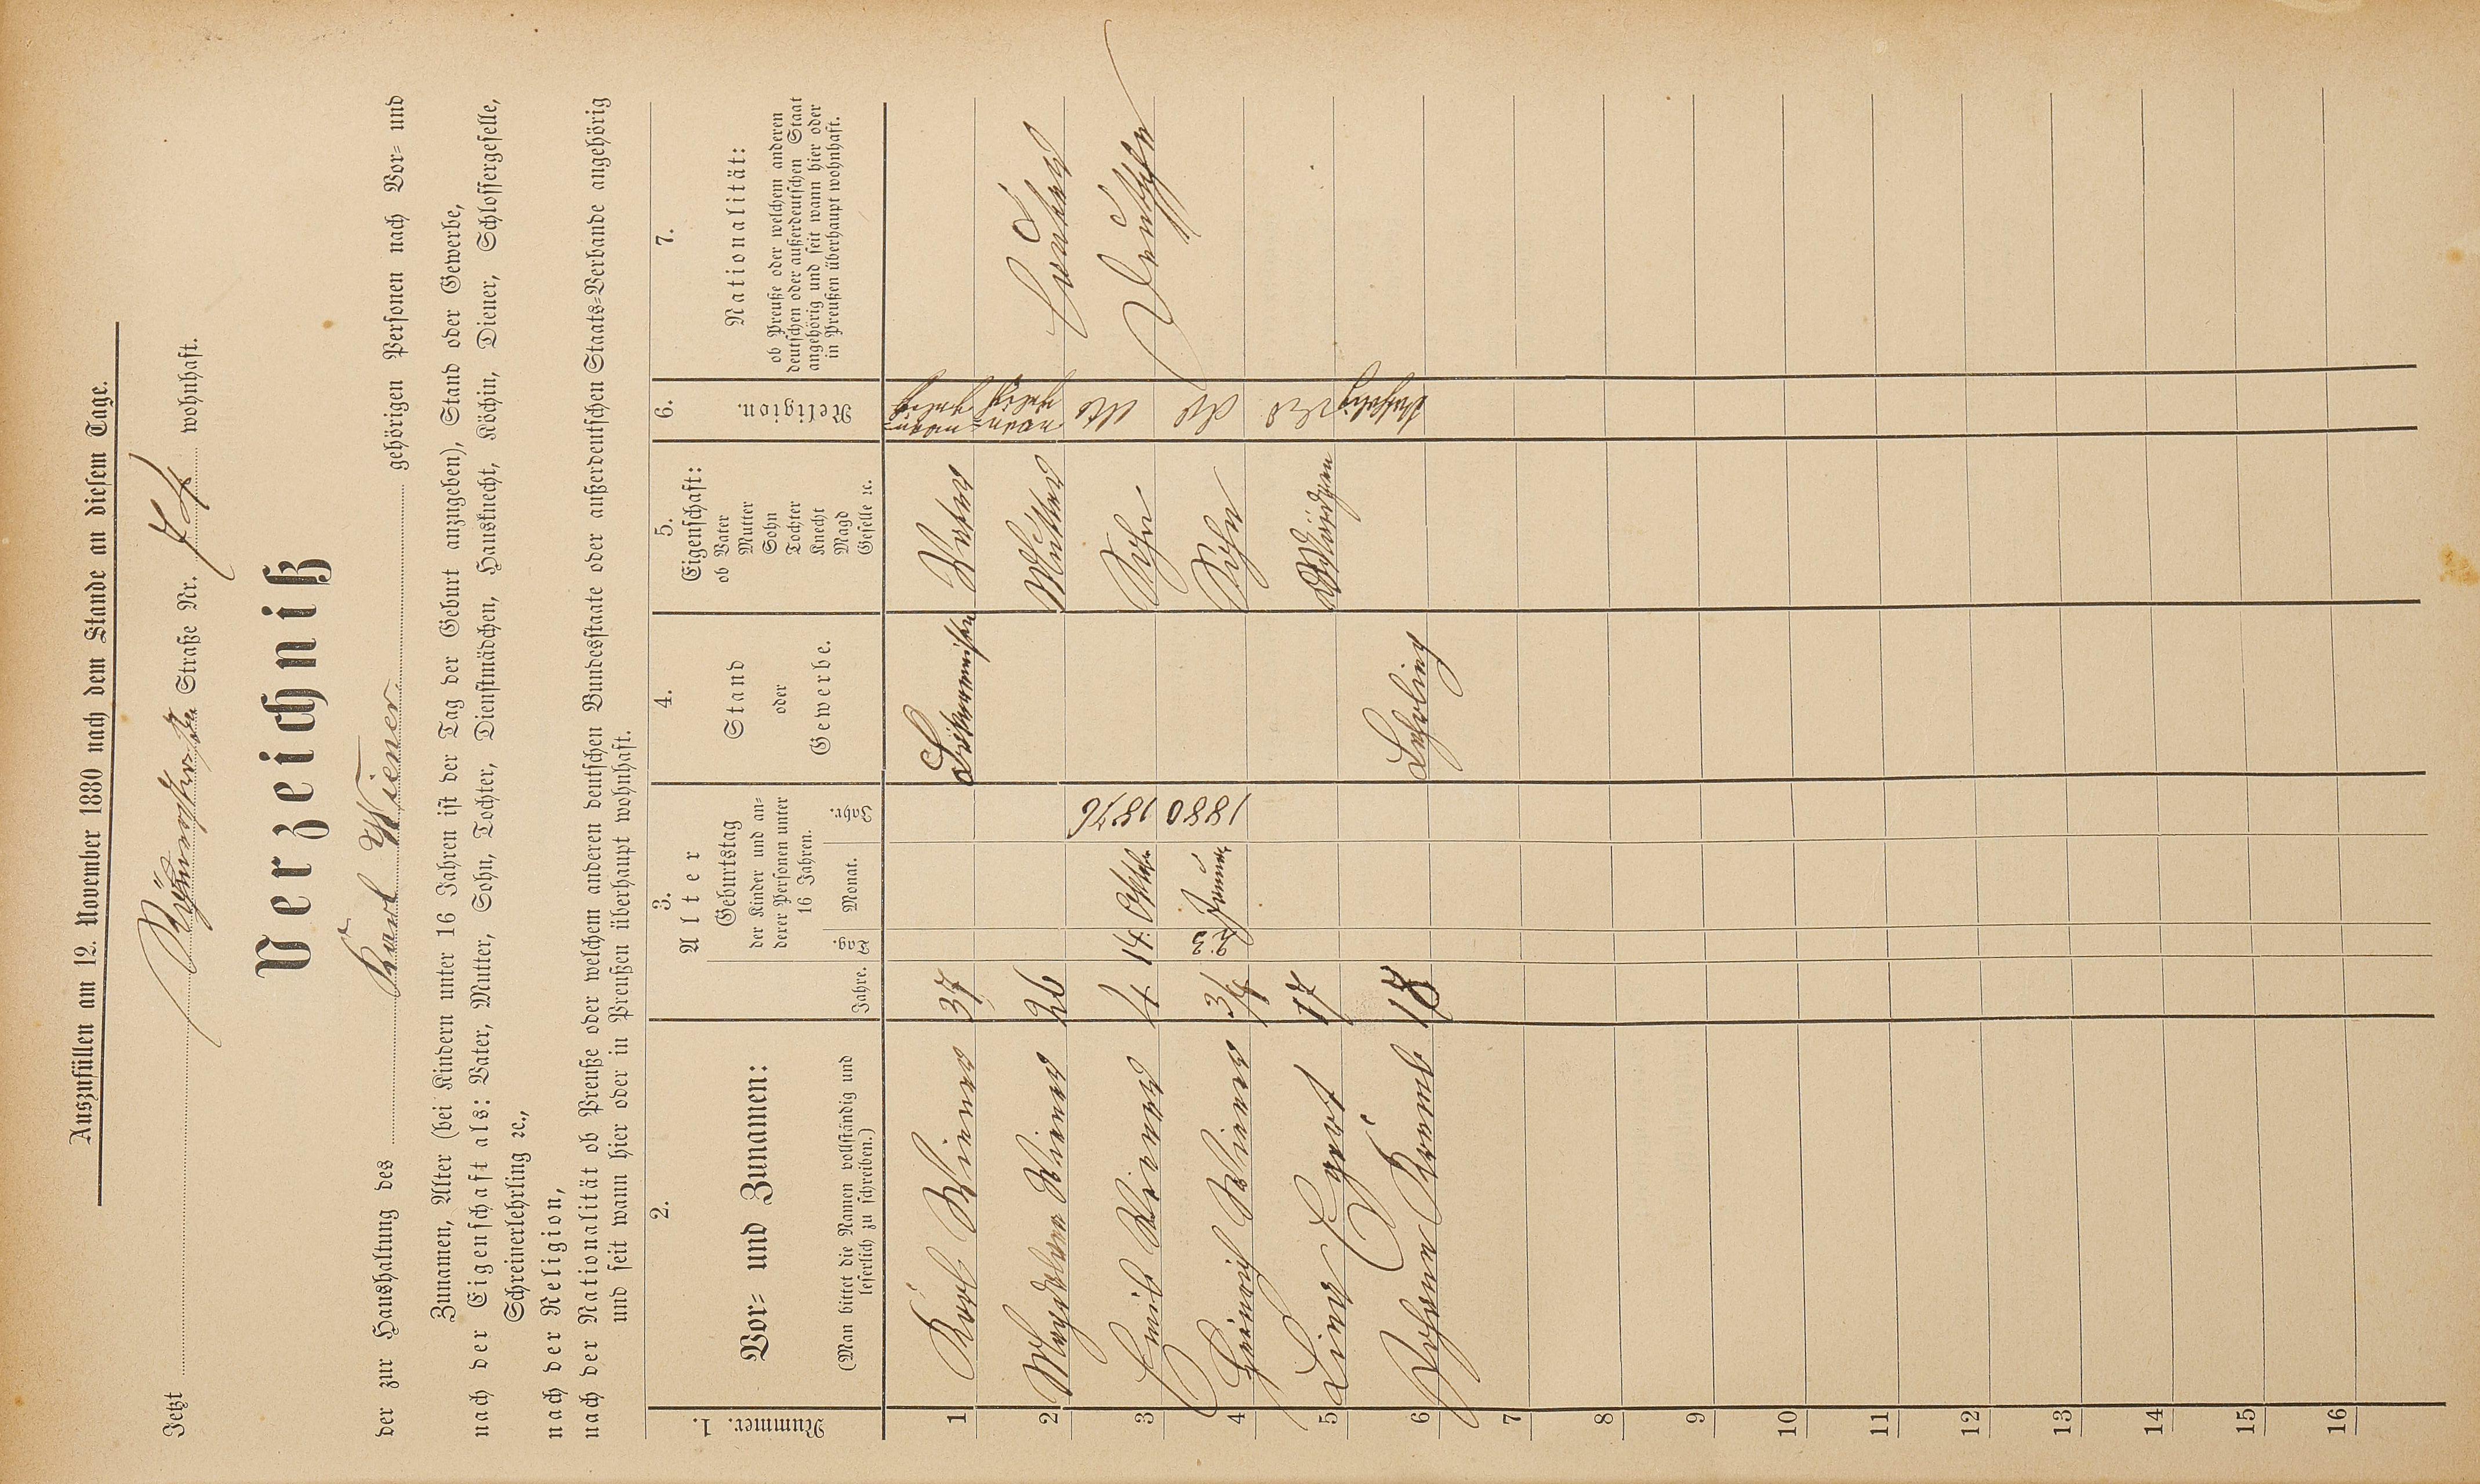 Auszufüllen am 12. November 1880 nach dem Stande an diesem Tage.
Jetzt Straße Nr. 74 wohnhaft.
Verzeichniß
der zur Haushaltung des Karl Wiener gehörigen Personen nach Vor- und
Zunamen, Alter (bei Kindern unter 16 Jahren ist der Tag der Geburt anzugeben), Stand oder Gewerbe,
nach der Eigenschaft als: Vater, Mutter, Sohn, Tochter, Dienstmädchen, Hausknecht, Köchin, Diener, Schlossergeselle,
Schreinerlehrling ꝛc.,
nach der Religion,
nach der Nationalität ob Preuße oder welchem anderen deutschen Bundesstaate oder außerdeutschen Staats-Verbande angehörig
und seit wann hier oder in Preußen überhaupt wohnhaft.
1.
Nummer.
2.
Vor- und Zunamen:
(Man bittet die Namen vollständig und
leserlich zu schreiben.)
3.
Alter
Jahre.
Geburtstag
der Kinder und an-
derer Personen unter
16 Jahren.
Tag. Monat. Jahr.
4.
Stand
oder
Gewerbe.
5.
Eigenschaft:
ob Vater
Mutter
Sohn
Tochter
Knecht
Magd
Geselle ꝛc.
6.
Religion.
7.
Nationalität:
ob Preuße oder welchem anderen
deutschen oder außerdeutschen Staat
angehörig und seit wann hier oder
in Preußen überhaupt wohnhaft.
1 Karl Wiener 37 Vater
2 Magdalena Wiener 36 Mutter
3 Emil Wiener 4 14. Oktob. 1876 Sohn
4 Heinrich Wiener 3/4 Januar 1880 Sohn
5 Lina 17 Mädchen
6 Johann 18 Lehrling
7
8
9
10
11
12
13
14
15
16